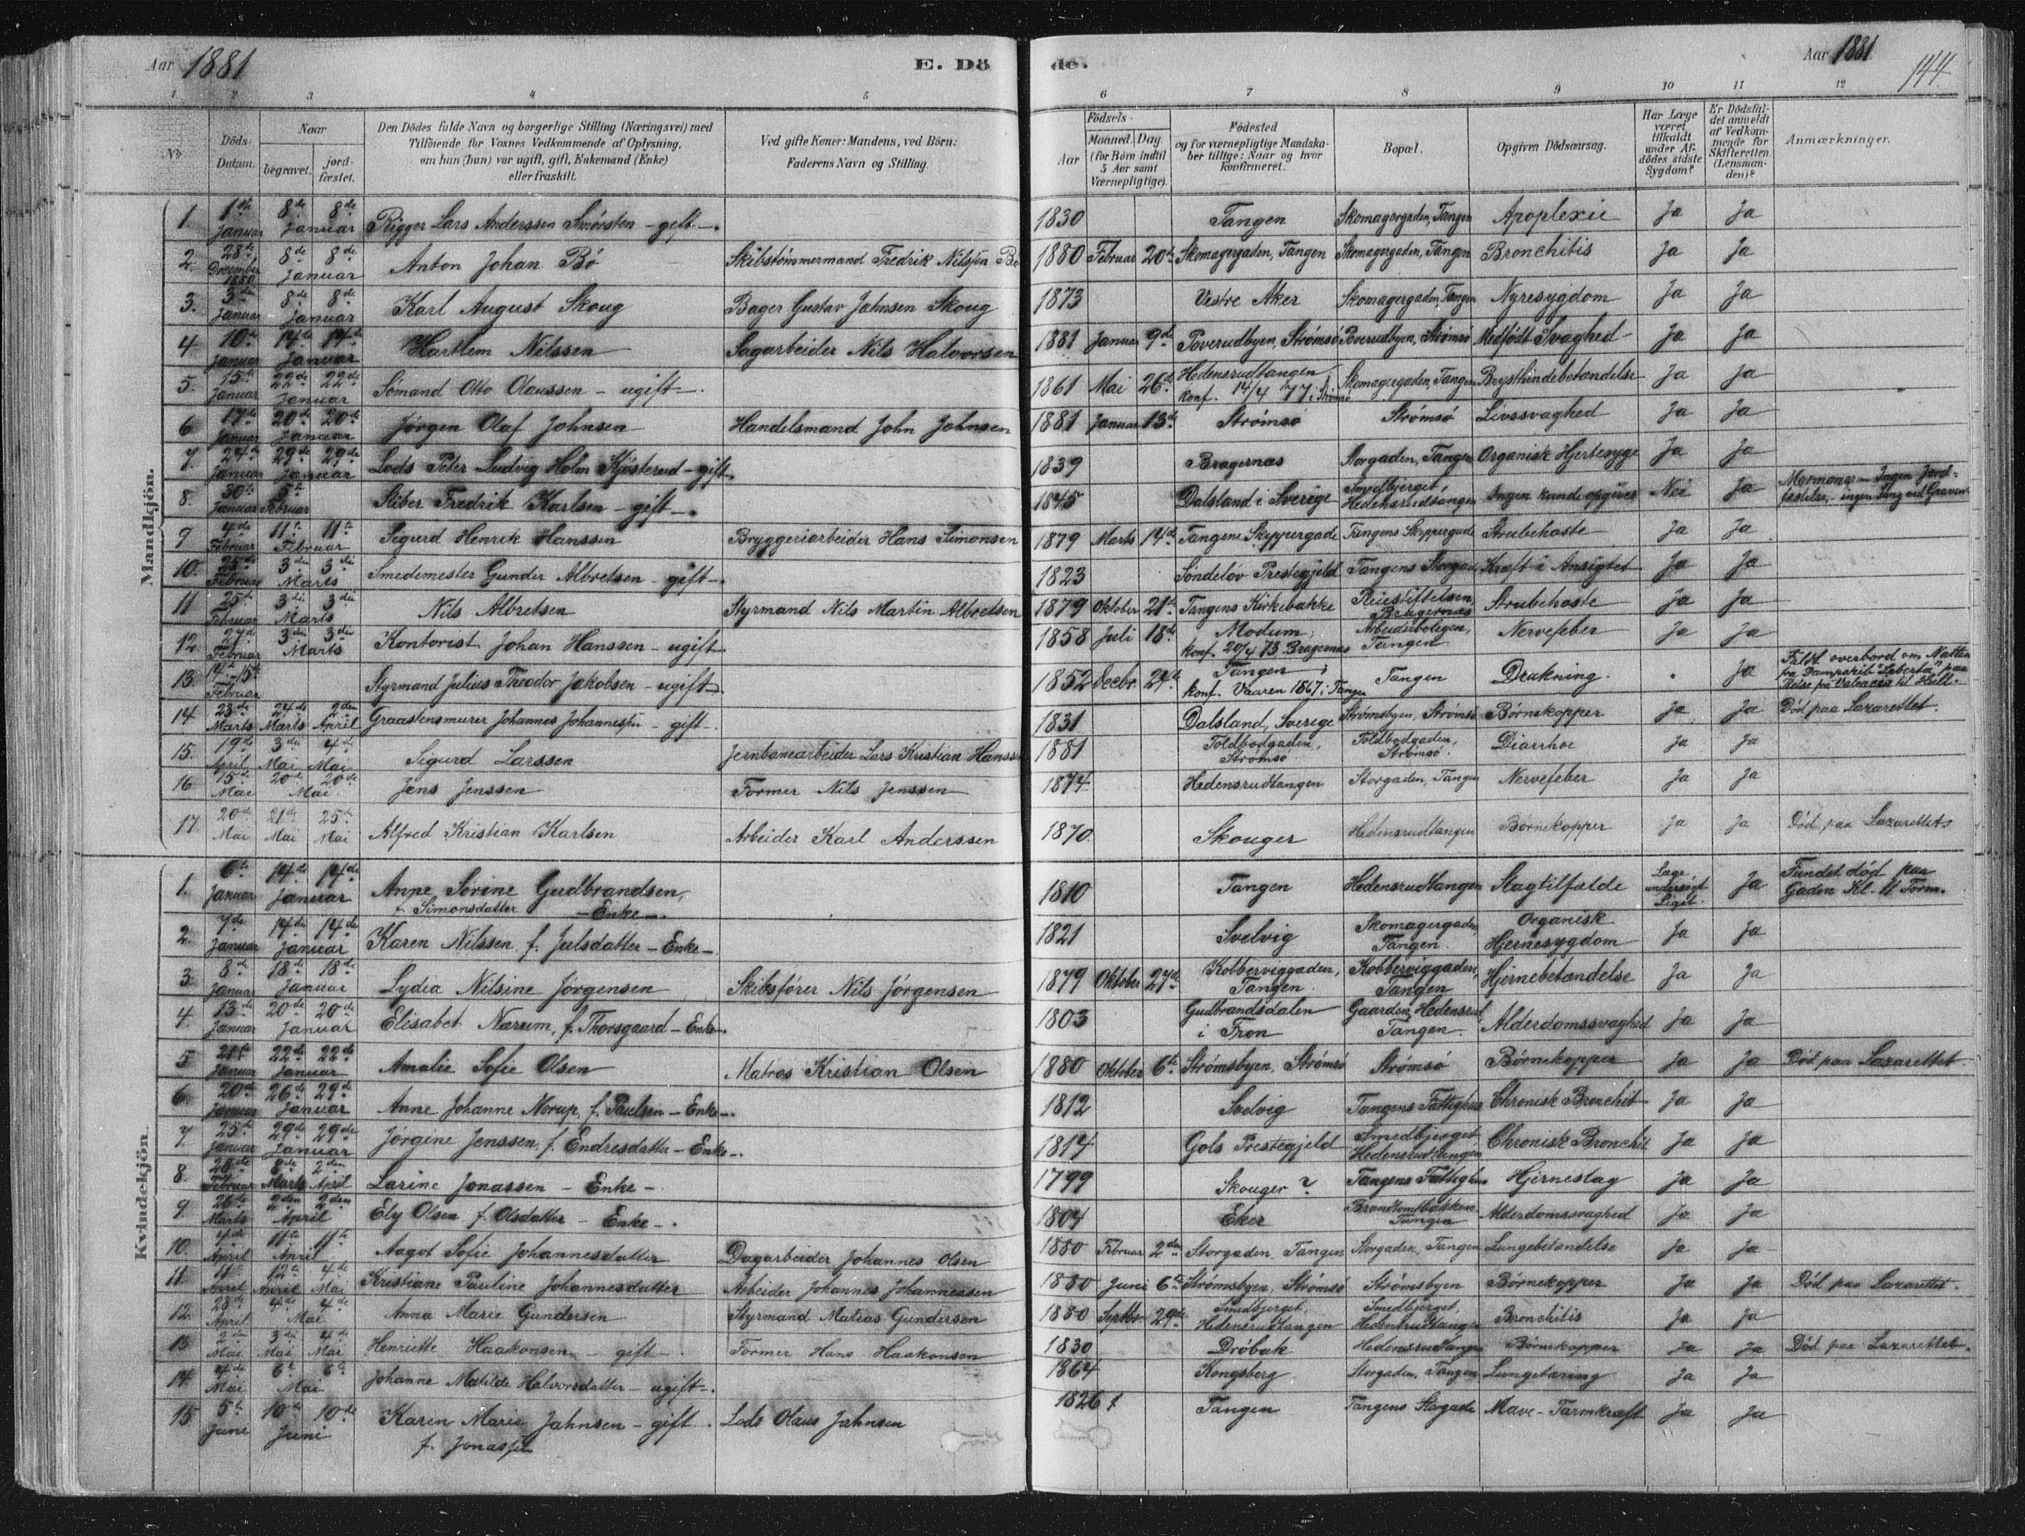 Aar 1881
E. Dö
de.
Aar 1881
144.
1 2 3 4 5 6 7 8 9 10 11 12
No
Döds-Datum.
Naar
begravet.
jord-fæstet.
Den Dödes fulde Navn og borgerlige Stilling (Næringsvei) med
Tilföiende for Voxnes Vedkommende af Oplysning,
om han (hun) var ugift, gift, Enkemand (Enke)
eller fraskilt.
Ved gifte Koner: Mandens, ved Börn:
Faderens Navn og Stilling.
Födsels-
Aar
Maaned. Dag.
(for Börn indtil
5 Aar samt
Værnepligtige).
Födested
og for værnepligtige Mandska-
ber tillige: Naar og hvor
konfirmeret.
Bopæl.
Opgiven Dödsaarsag.
Har Læge
været
tilkaldt
under Af-
dödes sidste
Sygdom?
Er Dödsfal-
det anmeldt
af Vedkom-
mende for
Skifteretten
(Lensman-
den)?
Anmærkninger.
Mandkjön.
1. 1ste Januar 8de Januar 8de Rigger Lars Anderssen Smørsten - gift -. 1830 Tangen Skomagergaden, Tangen Apoplexie Ja Ja
2. 28de December 1880 8de Januar 8de Anton Johan Bö Skibstømmermand Fredrik Nilssen Bö 1880 Februar 20de Skomagergaden, Tangen Skomagergaden, Tangen Bronchitis Ja Ja
3. 3die Januar 8de Januar 8de Karl August Skoug Bager Gustav Jahnsen Skoug 1873 Vestre Aker Skomagergaden, Tangen Nyresygdom Ja Ja
4. 10de Januar 14de Januar 14de Harlem Nilssen Sagarbeider Nils Halvorsen 1881 Januar 9de Toverudbyen, Strømsø Toverudbyen, Strømsø Medfødt Svaghed Ja Ja
5. 15de Januar 22de Januar 22de Sømand Otto Olaussen - ugift -. 1861 Mai 26de Hedensrudtangen konf. 14/4 77 i Strømsø Skomagergaden, Tangen Brysthindebetændelse Ja Ja
6. 17de Januar 20de Januar 20de Jørgen Olaf Johnsen Handelsmand John Johnsen 1881 Januar 13de Strømsø Strømsø Livssvaghed Ja Ja
7. 24de Januar 29de Januar 29de Lods Peter Ludvig Holm Kjøsterud - gift. 1839 Bragernæs Storgaden, Tangen Organisk Hjertesyge Ja Ja
8. 30te Januar 5te Februar Sliber Fredrik Karlsen - gift -. 1845 Dalsland i Sverige Smedbjerget, Hedensrudtangen Ingen kunde opgives Nei Ja Mormoner - Ingen Jord-fæstelse, - ingen Sang ved Graven
9. 4de Februar 11te Februar 11te Sigurd Henrik Hanssen Bryggeriarbeider Hans Simonsen 1879 Marts 14de Tangens Skippergade Tangens Skippergade Strubehoste Ja Ja
10. 25de Februar 3die Marts 3die Smedemester Gunder Albretsen - gift -. 1823 Søndeløv Prestegjeld Tangens Storgade Kræft i Ansigtet Ja Ja
11. 25de Februar 3die Marts 3die Nils Albretsen Styrmand Nils Martin Albretsen 1879 Oktober 21de Tangens Kirkebakke Bragernæs Strubehoste Ja Ja
12. 27de Februar 3die Marts 3die Kontorist Johan Hanssen - ugift. 1858 Juli 18de Modum, konf. 20/4 73 Bragernæs Arbeiderboligen, Tangen Nervefeber Ja Ja
13. 14de-15de Februar Styrmand Julius Theodor Jakobsen - ugift -. 1852 Decbr. 29de Tangen; konf. Vaaren 1867 i Tangen Tangen Drukning. " Ja Faldt overbord om Natten fra Dampskib "Liberta" paa Reise fra Valencia til Hull.
14. 23de Marts 24de Marts 2den April Graastensmurer Johannes Johannessen - gift -. 1831 Dalsland, Sverige Strømsbyen, Strømsø Børnekopper Ja Ja Død paa Lazarettet.
15. 19de April 3die Mai 4de Mai Sigurd Larssen Jernbanearbeider Lars Kristian Hanssen 1881 Toldbodgaden, Strømsø Toldbodgaden, Strømsø. Diarrhoe Ja Ja
16. 15de Mai 20de Mai 20de Jens Jenssen Former Nils Jenssen 1874. Hedensrudtangen Storgaden, Tangen Nervefeber Ja Ja
17. 20de Mai 21de Mai 25de Mai Alfred Kristian Karlsen Arbeider Karl Anderssen 1870. Skouger Hedensrudtangen Børnekopper Ja Ja Død paa Lazarettet
Kvindekjön.
1. 6te Januar 14de Januar 14de Anne Sørine Gudbrandsen, f. Simonsdatter - Enke -. 1810 Tangen Hedensrudtangen Slagtilfælde Læge undersøgt Liget Ja Fundet død paa Gaden Kl. 11 Form.
2. 7de Januar 14de Januar 14de Karen Nilssen, f. Julsdatter - Enke - 1821 Svelvig Skomagergaden, Tangen. Organisk Hjernesygdom Ja Ja
3. 8de Januar 18de Januar 18de Lydia Nilsine Jørgensen Skibsfører Nils Jørgensen 1879 Oktober 27de Kobberviggaden, Tangen. Kobberviggaden, Tangen Hjernebetændelse Ja Ja
4. 13de Januar 20de Januar 20de Elisabet Nærum, f. Thorsgaard - Enke. 1803 Gudbrandsdalen i Fron Gaarden Hedensrud Tangen. Alderdomssvaghed Ja Ja
5. 21de Januar 22de Januar 22de Amalie Sofie Olsen Matros Kristian Olsen 1880 Oktober 6te Strømsbyen, Strømsø Strømsø Børnekopper Ja Ja Død paa Lazarettet.
6. 20de Januar 26de Januar 29de Anne Johanne Norup, f. Paulsen - Enke -. 1812 Svelvig Tangens Fattighus Chronisk Bronchit Ja Ja
7. 25de Januar 29de Januar 29de Jørgine Jenssen, f. Endresdatter - Enke -. 1814 Gols Prestegjeld Smedbjerget Hedensrudtangen Chronisk Bronchit Ja Ja
8. 28de Februar 8de Marts 2den April Larine Jonassen - Enke - 1799 Skouger? Tangens Fattighus Hjerneslag Ja Ja
9. 26de Marts 2den April 2den Ely Olsen f. Olsdatter - Enke -. 1804 Eker Tangen Alderdomssvaghed Ja Ja
10. 4de April 11te April 11te Aagot Sofie Johannesdatter Dagarbeider Johannes Olsen 1880 Februar 2den Storgaden, Tangen Storgaden, Tangen Lungebetændelse Ja Ja
11. 11te April 12te April 4de Mai Kristiane Pauline Johannesdatter Arbeider Johannes Johannessen 1880 Juni 6te Strømsbyen, Strømsø Strømsbyen Børnekopper Ja Ja Død paa Lazarettet.
12. 28de April 4de Mai 4de Anna Marie Gundersen Styrmand Matias Gundersen 1880 Septbr. 29de Smedbjerget, Hedensrudtangen Smedbjerget, Hedensrudtangen Bronchitis Ja Ja
13. 2den Mai 3die Mai 4de Mai Henriette Haakonsen - gift - Former Hans Haakonsen 1830 Drøbak Hedensrudtangen Børnekopper Ja Ja Død paa Lazarettet.
14. 4de Mai 6te Mai 6te Johanne Matilde Halvorsdatter - ugift -. 1864 Kongsberg Storgaden, Tangen Lungetæring Ja Ja
15 5te Juni 10de Juni 10de Karen Marie Jahnsen - gift. f. Jonassen Lods Olaus Jahnsen 1826 Tangen Tangens Storgade Mave-Tarmkræft Ja Ja